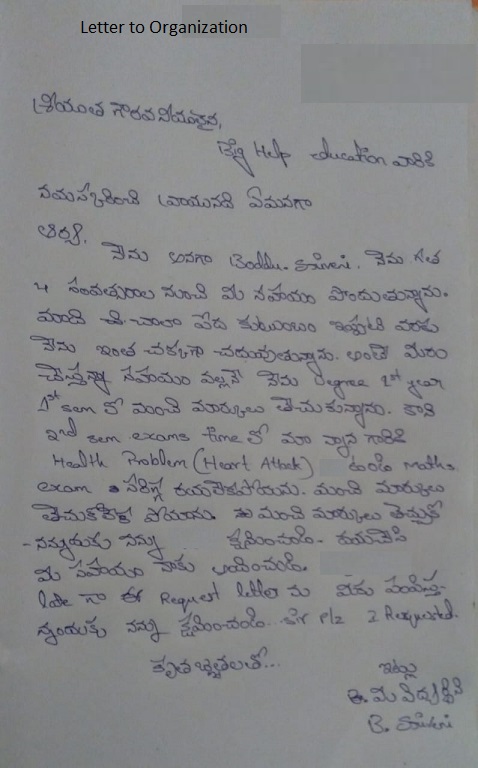 Letter to Organization
శ్రీయుత గౌరవనీయులైన,
Big Help education వారికి
నమస్కరించి వ్రాయునది ఏమనగా
సార్,
నేను అనగా Boddu. Sravani. నేను గత
4 సంవత్సరాల నుంచి మీ సహాయం పొందుతున్నాను.
మాది చాలా పేద కుటుంబం ఇప్పటి వరకు
నేను ఇంత చక్కగా చదువుతున్నాను. అంతే మీరు
చేస్తున్న సహాయం వల్లనే నేను Degree 1st year
1st sem లో మంచి మార్కులు తెచుకున్నాను. కాని
2nd sem exams time లో మా నాన్న గారికి
Health Problem (Heart Attack) ఉండి Maths
exam సరిగ్గ రాయలేకపోయను. మంచి మార్కులు
తెచుకోలేక పోయాను. మంచి మార్కులు తెచ్చుకో
-నందుకు నన్ను క్షమించండి. దయచేసి
మీ సహాయం నాకు అందించండి.
late గా ఈ Request letter ను మీకు పంపిస్తు-
న్నందుకు నన్ను క్షమించండి. Sir Plz I Requested.
కృతజ్ఞతలతో...
ఇట్లు
మీ విద్యార్థిని
B. Sravani